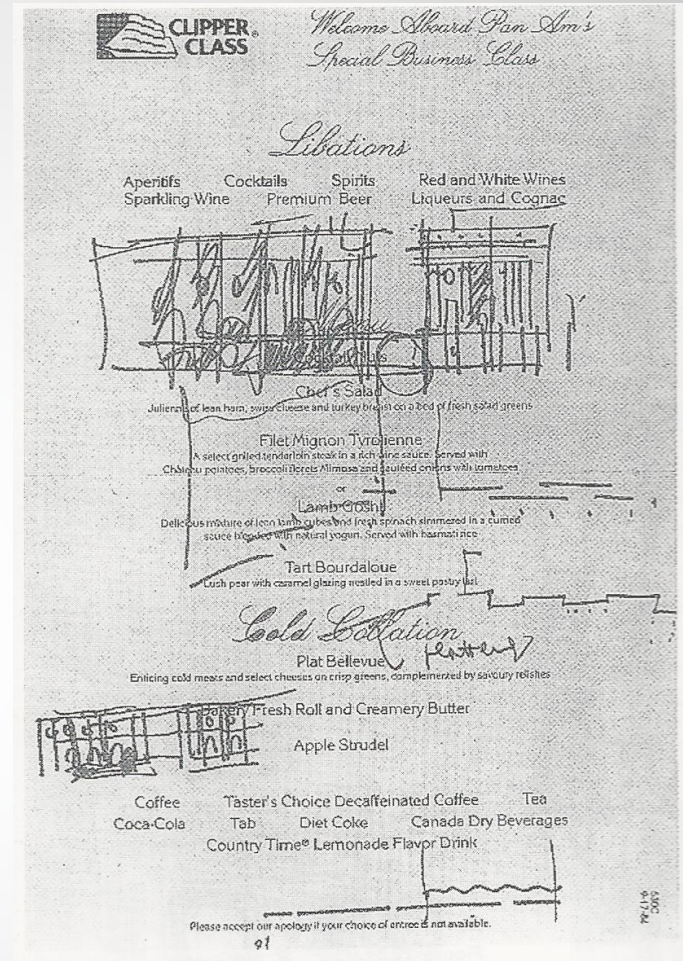 CLIPPER CLASS®
Welcome Aboard Pan Am's
Special Business Class
Libations
Aperitifs Cocktails Spirits Red and White Wines
Sparkling Wine Premium Beer Liqueurs and Cognac
Cocktail Nuts
Chef's Salad
Julienne of lean ham, swiss cheese and turkey breast on a bed of fresh salad greens
Filet Mignon Tyrolienne
A select grilled tenderloin steak in a rich wine sauce. Served with
Château potatoes, broccoli florets Mimosa and sautéed onions with tomatoes
or
Lamb Gosht
Delicious mixture of lean lamb cubes and fresh spinach simmered in a curried
sauce blended with natural yogurt. Served with basmati rice
Tart Bourdaloue
Lush pear with caramel glazing nestled in a sweet pastry
Cold Collation
Plat Bellevue
Enticing cold meats and select cheeses on crisp greens, complemented by savoury relishes
Bakery Fresh Roll and Creamery Butter
Apple Strudel
Coffee Taster's Choice Decaffeinated Coffee Tea
Coca-Cola Tab Diet Coke Canada Dry Beverages
Country Time® Lemonade Flavor Drink
Please accept our apology if your choice of entree is not available.
9-17-84